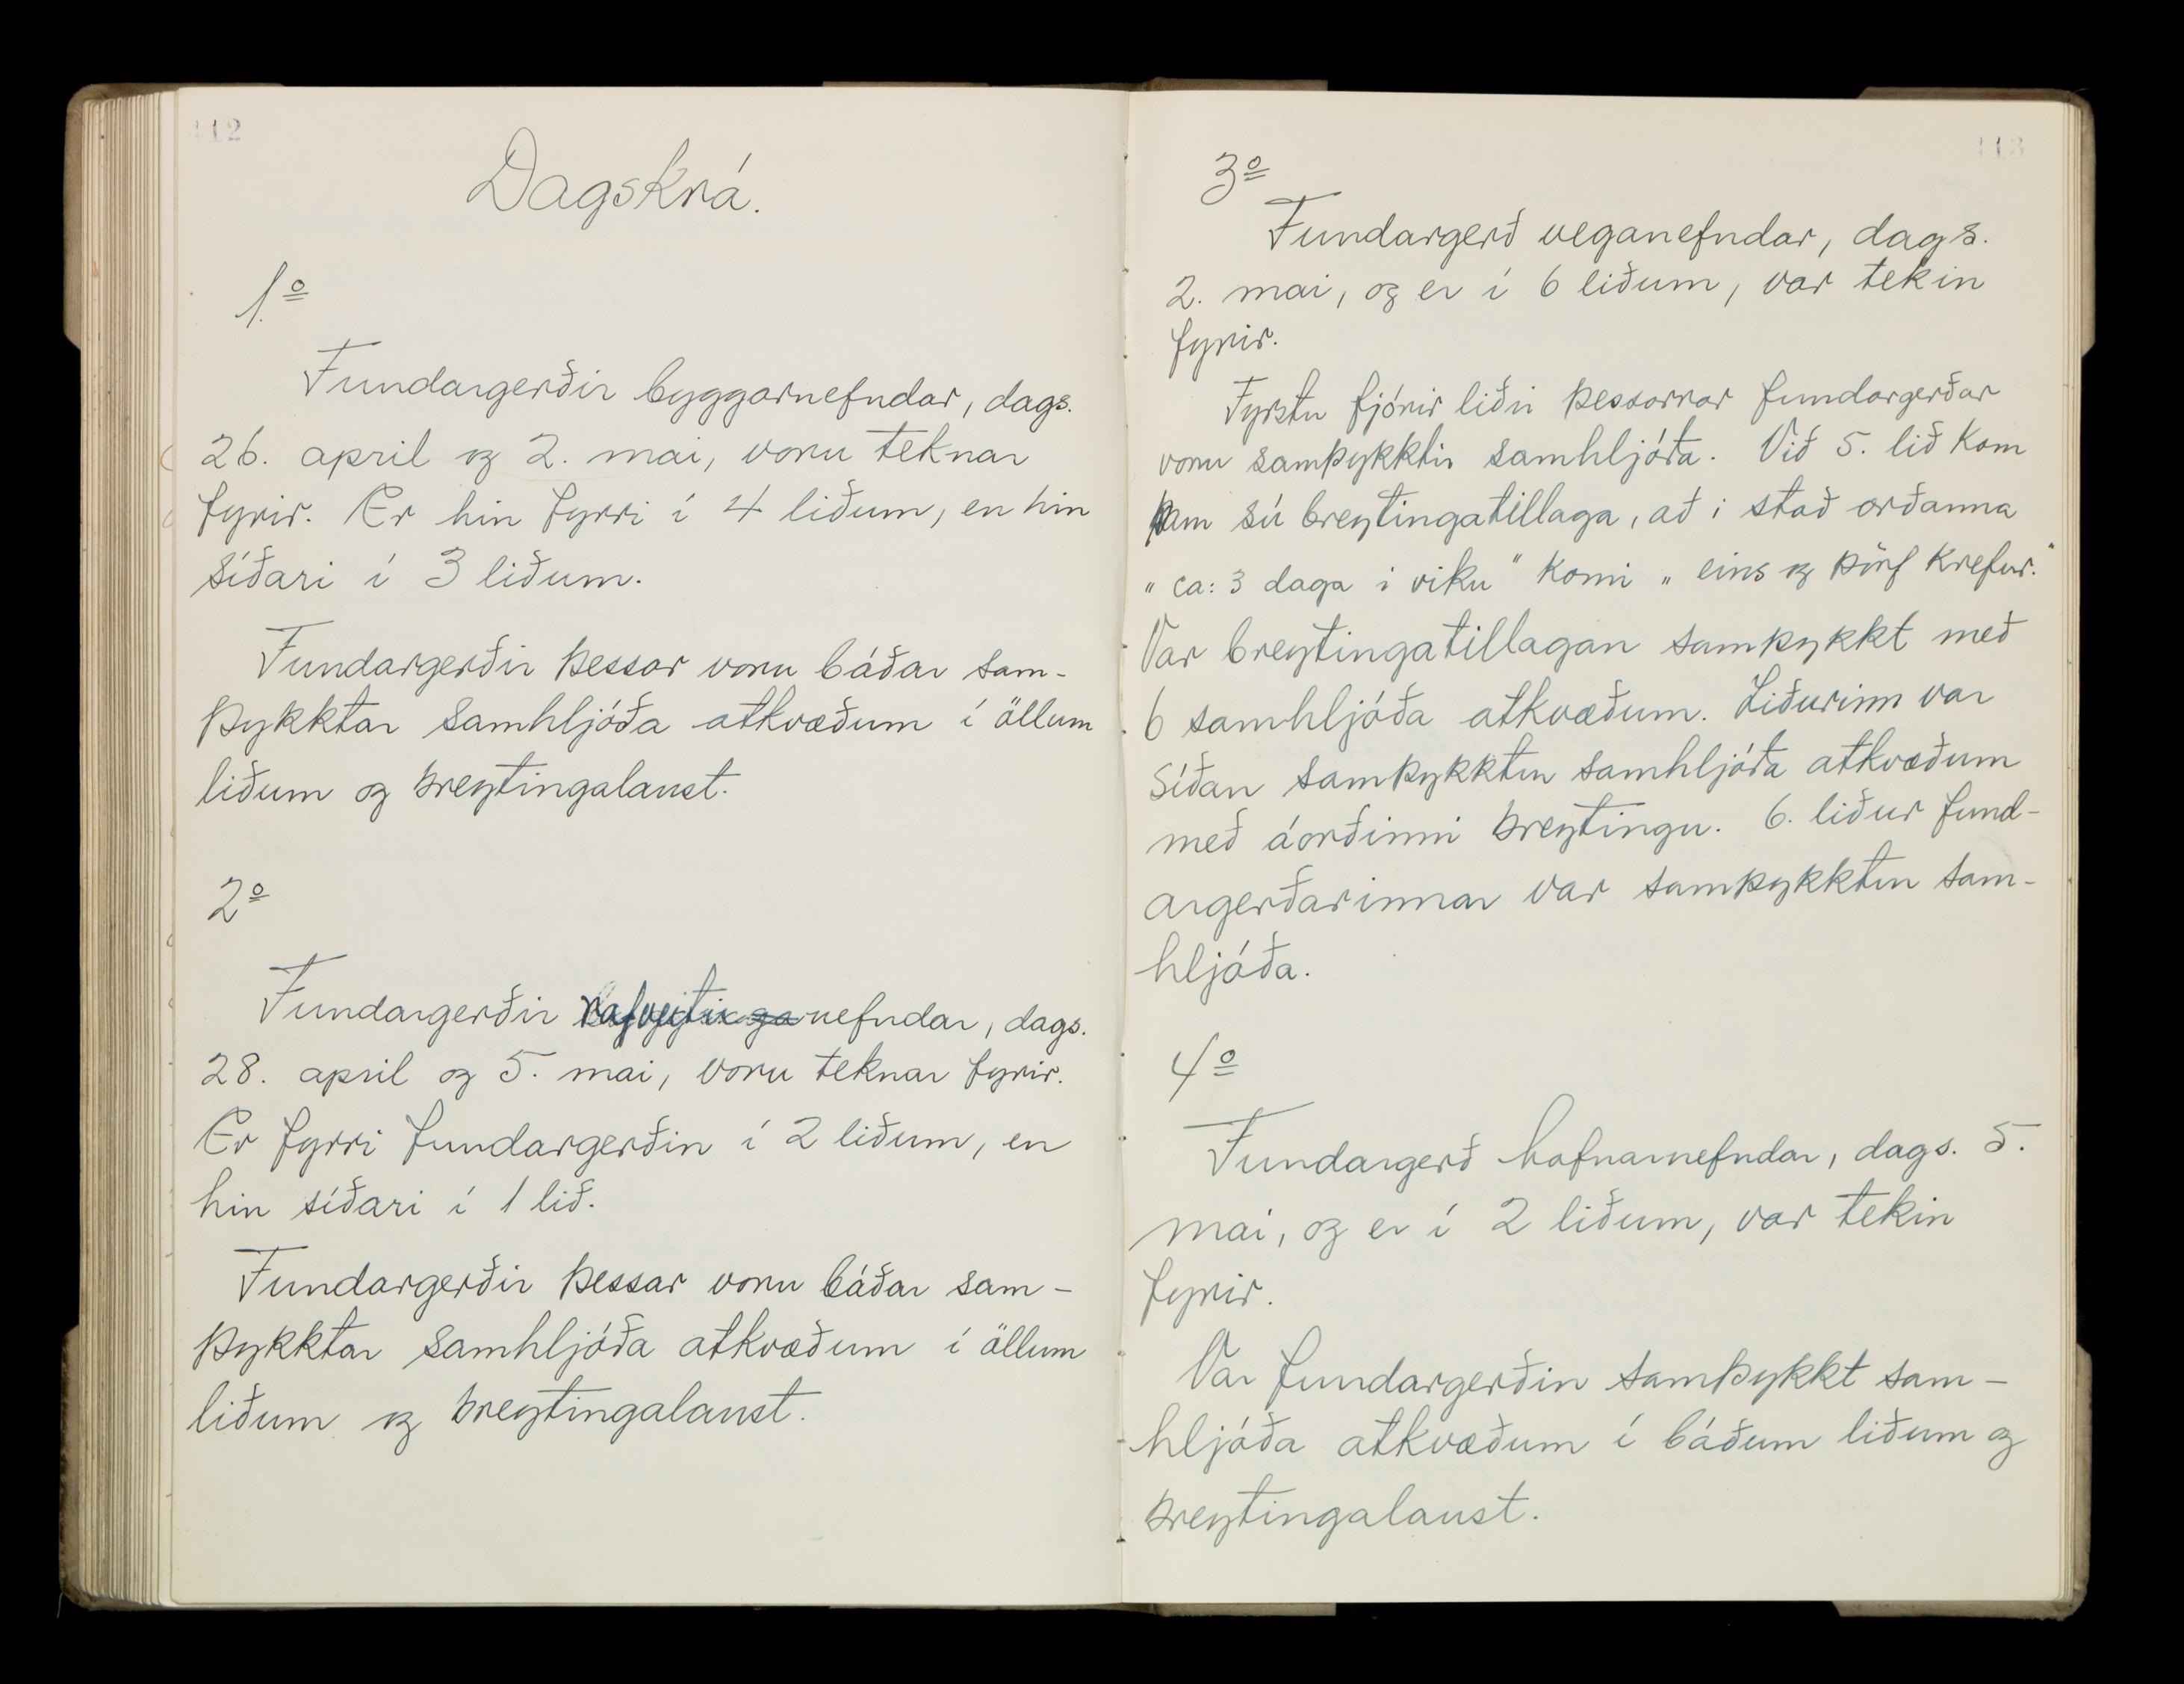 112
Dagskrá.
1.º
Fundargerðir byggarnefndar, dags.
26. april og 2. mai, voru teknar
fyrir. Er hin fyrri í 4 liðum, en hin
síðari í 3 liðum.
Fundargerðir þessar voru báðar sam-
þykktar samhljóða atkvæðum í öllum
liðum og breytingalaust.
2º
Fundargerðir nefndar, dags.
28. april og 5. mai, voru teknar fyrir.
Er fyrri fundargerðin í 2 liðum, en
hin síðari í 1 lið.
Fundargerðir þessar voru báðar sam-
þykktar samhljóða atkvæðum í öllum
liðum og breytingalaust.
113
3º
Fundargerð veganefndar, dags.
2. mai, og er í 6 liðum, var tekin
fyrir.
Fyrstu fjórir liðir þessarrar fundargerðar
voru samþykktir samhljóða. Við 5. lið kom
fram sú breytingatillaga, að i stað orðanna
„ca: 3 daga i viku" komi „eins og þörf krefur."
Var breytingatillagan samþykkt með
6 samhljóða atkvæðum. Liðurinn var
síðan samþykktur samhljóða atkvæðum
með áorðinni breytingu. 6. liður fund-
argerðarinnar var samþykktur sam-
hljóða.
4º
Fundargerð hafnarnefndar, dags. 5.
mai, og er í 2 liðum, var tekin
fyrir.
Var fundargerðin samþykkt sam-
hljóða atkvæðum í báðum liðum og
breytingalaust.